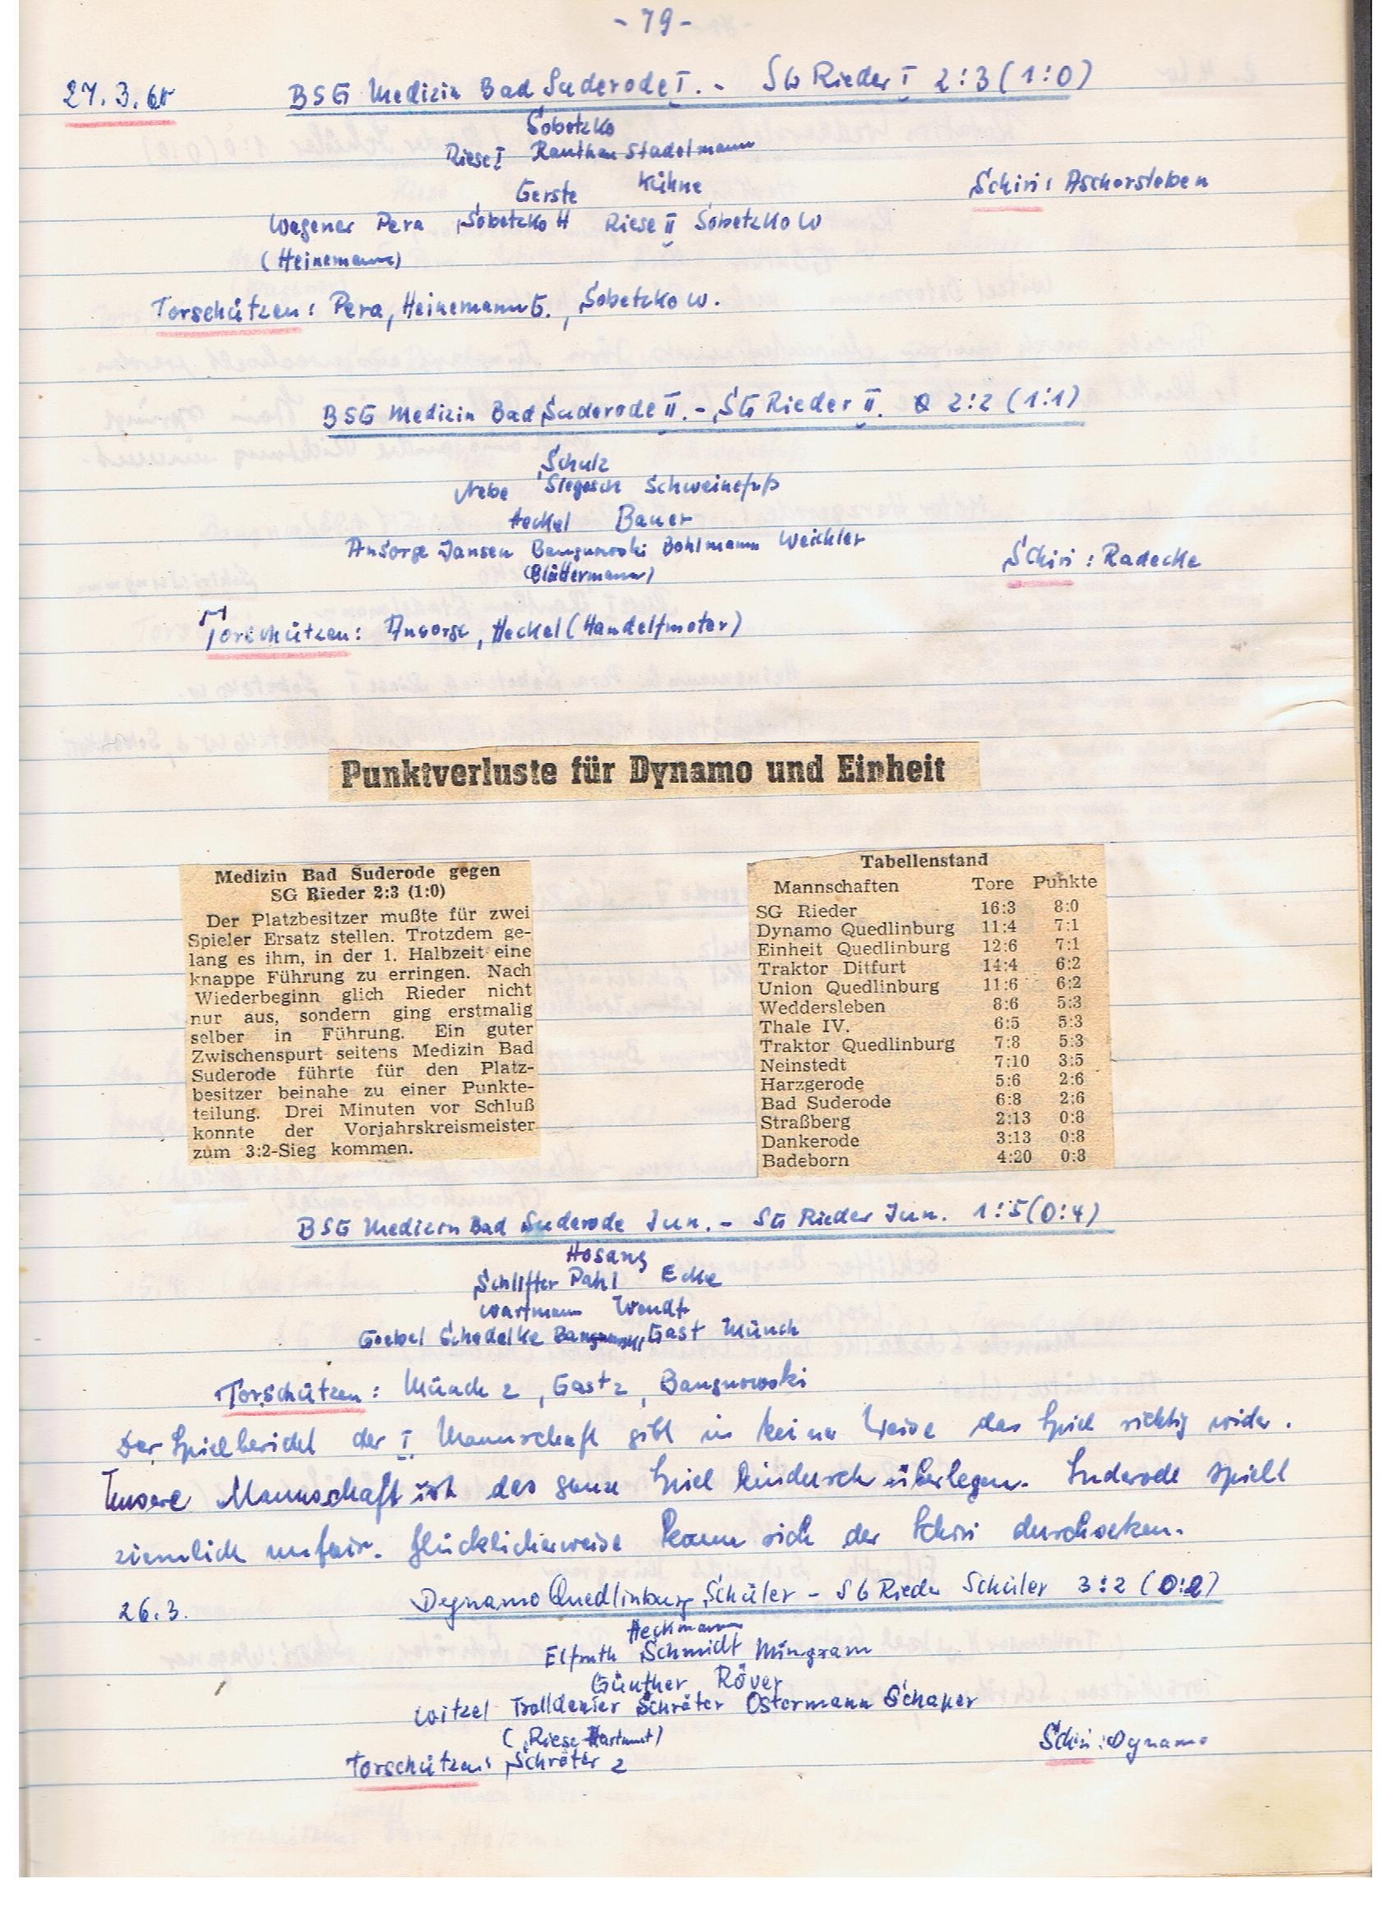 - 79 -
27.3.60 BSG Medizin Bad Suderode I. - SG Rieder I 2:3 (1:0)
Sobetzko
Riese I Rauthan Stadelmann
Gerste Kühne
Schiri: Aschersleben
Wagener Pera Sobetzko H Riese II Sobetzko W
(Heinemann)
Torschützen: Pera, Heinemann G., Sobetzko W.
BSG Medizin Bad Suderode II. - SG Rieder II. 2:2 (1:1)
Schulz
Nebe Siegesch Schweinefuß
Heckel Bauer
Ansorge Jansen Bangnowski Bohlmann Weichler
(Blättermann)
Schiri: Radecke
Torschützen: Ansorge, Heckel (Handelfmeter)
Punktverluste für Dynamo und Einheit
Medizin Bad Suderode gegen
SG Rieder 2:3 (1:0)
Der Platzbesitzer mußte für zwei
Spieler Ersatz stellen. Trotzdem ge-
lang es ihm, in der 1. Halbzeit eine
knappe Führung zu erringen. Nach
Wiederbeginn glich Rieder nicht
nur aus, sondern ging erstmalig
selber in Führung. Ein guter
Zwischenspurt seitens Medizin Bad
Suderode führte für den Platz-
besitzer beinahe zu einer Punkte-
teilung. Drei Minuten vor Schluß
konnte der Vorjahrskreismeister
zum 3:2-Sieg kommen.
Tabellenstand
Mannschaften Tore Punkte
SG Rieder 16:3 8:0
Dynamo Quedlinburg 11:4 7:1
Einheit Quedlinburg 12:6 7:1
Traktor Ditfurt 14:4 6:2
Union Quedlinburg 11:6 6:2
Weddersleben 8:6 5:3
Thale IV. 6:5 5:3
Traktor Quedlinburg 7:8 5:3
Neinstedt 7:10 3:5
Harzgerode 5:6 2:6
Bad Suderode 6:8 2:6
Straßberg 2:13 0:8
Dankerode 3:13 0:8
Badeborn 4:20 0:8
BSG Medizin Bad Suderode Jun. - SG Rieder Jun. 1:5 (0:4)
Hosang
Schlifter Pahl Ecke
Wartmann Wendt
Goebel Schedelke Bangnowski Gast Münch
Torschützen: Münch 2, Gast 2, Bangnowski
Der Spielbericht der I. Mannschaft gibt in keiner Weise das Spiel richtig wider.
Unsere Mannschaft ist das ganze Spiel hindurch überlegen. Suderode spielt
ziemlich unfair. Glücklicherweise kann sich der Schiri durchsetzen.
26.3. Dynamo Quedlinburg Schüler - SG Rieder Schüler 3:2 (0:2)
Heckmann
Elfruth Schmidt Mingram
Günther Röver
Witzel Trolldenier Schröter Ostermann Schaper
(Riese Hartmut)
Schiri: Dynamo
Torschützen: Schröter 2